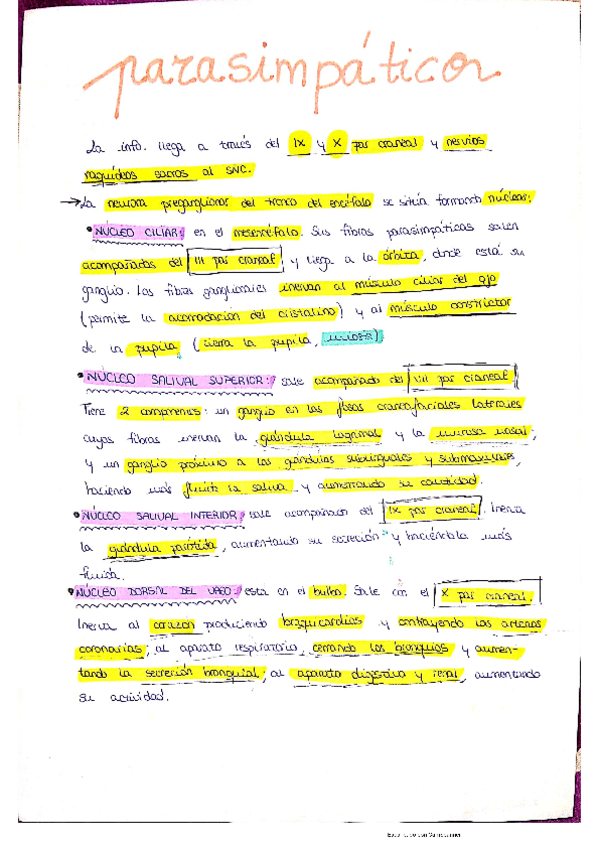 parasimpático
La info. llega a través del IX y X par craneal y nervios
raquídeos sacros al SNC.
→ La neurona preganglionar del tronco del encéfalo se sitúa formando núcleos:
• NÚCLEO CILIAR: en el mesencéfalo. Sus fibras parasimpáticas salen
acompañadas del III par craneal y llega a la órbita, donde está su
ganglio. Las fibras ganglionares inervan al músculo ciliar del ojo
(permite la acomodación del cristalino) y al músculo constrictor
de la pupila (cierra la pupila, miosis)
• NÚCLEO SALIVAL SUPERIOR: sale acompañado del VII par craneal
Tiene 2 componentes: un ganglio en las fosas craneofaciales laterales
cuyas fibras inervan la glándula lagrimal y la mucosa nasal;
y un ganglio próximo a las glándulas sublinguales y submaxilares,
haciendo más fluida la saliva y aumentando su cantidad.
• NÚCLEO SALIVAL INTERIOR: sale acompañado del IX par craneal. Inerva
la glándula parótida, aumentando su secreción y haciéndola más
fluida.
• NÚCLEO DORSAL DEL VAGO: esta en el bulbo. Sale con el X par craneal.
Inerva al corazón produciendo bradicardias y contrayendo las arterias
coronarias; al aparato respiratorio, cerrando los bronquios y aumen-
tando la secreción bronquial; al aparato digestivo y renal, aumentando
su actividad.